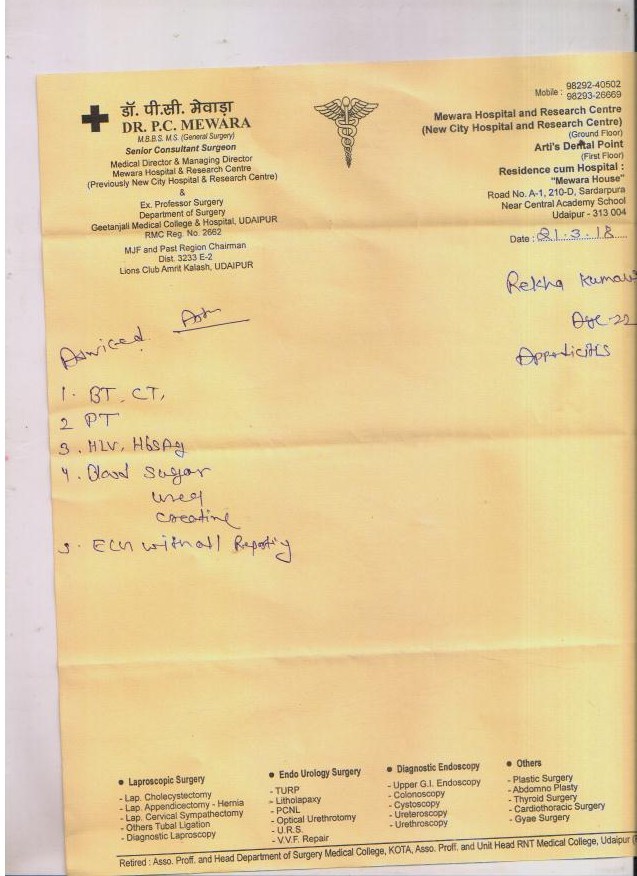 डॉ. पी.सी. मेवाड़ा
DR. P.C. MEWARA
M.B.B.S. M.S. (General Surgery)
Senior Consultant Surgeon
Medical Director & Managing Director
Mewara Hospital & Research Centre
(Previously New City Hospital & Research Centre)
&
Ex. Professor Surgery
Department of Surgery
Geetanjali Medical College & Hospital, UDAIPUR
RMC Reg. No. 2662
MJF and Past Region Chairman
Dist. 3233 E-2
Lions Club Amrit Kalash, UDAIPUR
Mobile : 98292-40502
98293-26669
Mewara Hospital and Research Centre
(New City Hospital and Research Centre)
(Ground Floor)
Arti's Dental Point
(First Floor)
Residence cum Hospital :
"Mewara House"
Road No. A-1, 210-D, Sardarpura
Near Central Academy School
Udaipur - 313 004
Date : 21.3.18
Rekha
Age-22
Appendicitis
Adviced
1. BT, CT,
2 PT
3. HIV, HbsAg
4. Blood Sugar
urea
creatine
5. with all Reporting
• Laproscopic Surgery
- Lap. Cholecystectomy
- Lap. Appendicectomy - Hernia
- Lap. Cervical Sympathectomy
- Others Tubal Ligation
- Diagnostic Laproscopy
• Endo Urology Surgery
- TURP
- Litholapaxy
- PCNL
- Optical Urethrotomy
- U.R.S.
- V.V.F. Repair
• Diagnostic Endoscopy
- Upper G.I. Endoscopy
- Colonoscopy
- Cystoscopy
- Ureteroscopy
- Urethroscopy
• Others
- Plastic Surgery
- Abdomno Plasty
- Thyroid Surgery
- Cardiothoracic Surgery
- Gyae Surgery
Retired : Asso. Proff. and Head Department of Surgery Medical College, KOTA, Asso. Proff. and Unit Head RNT Medical College, Udaipur